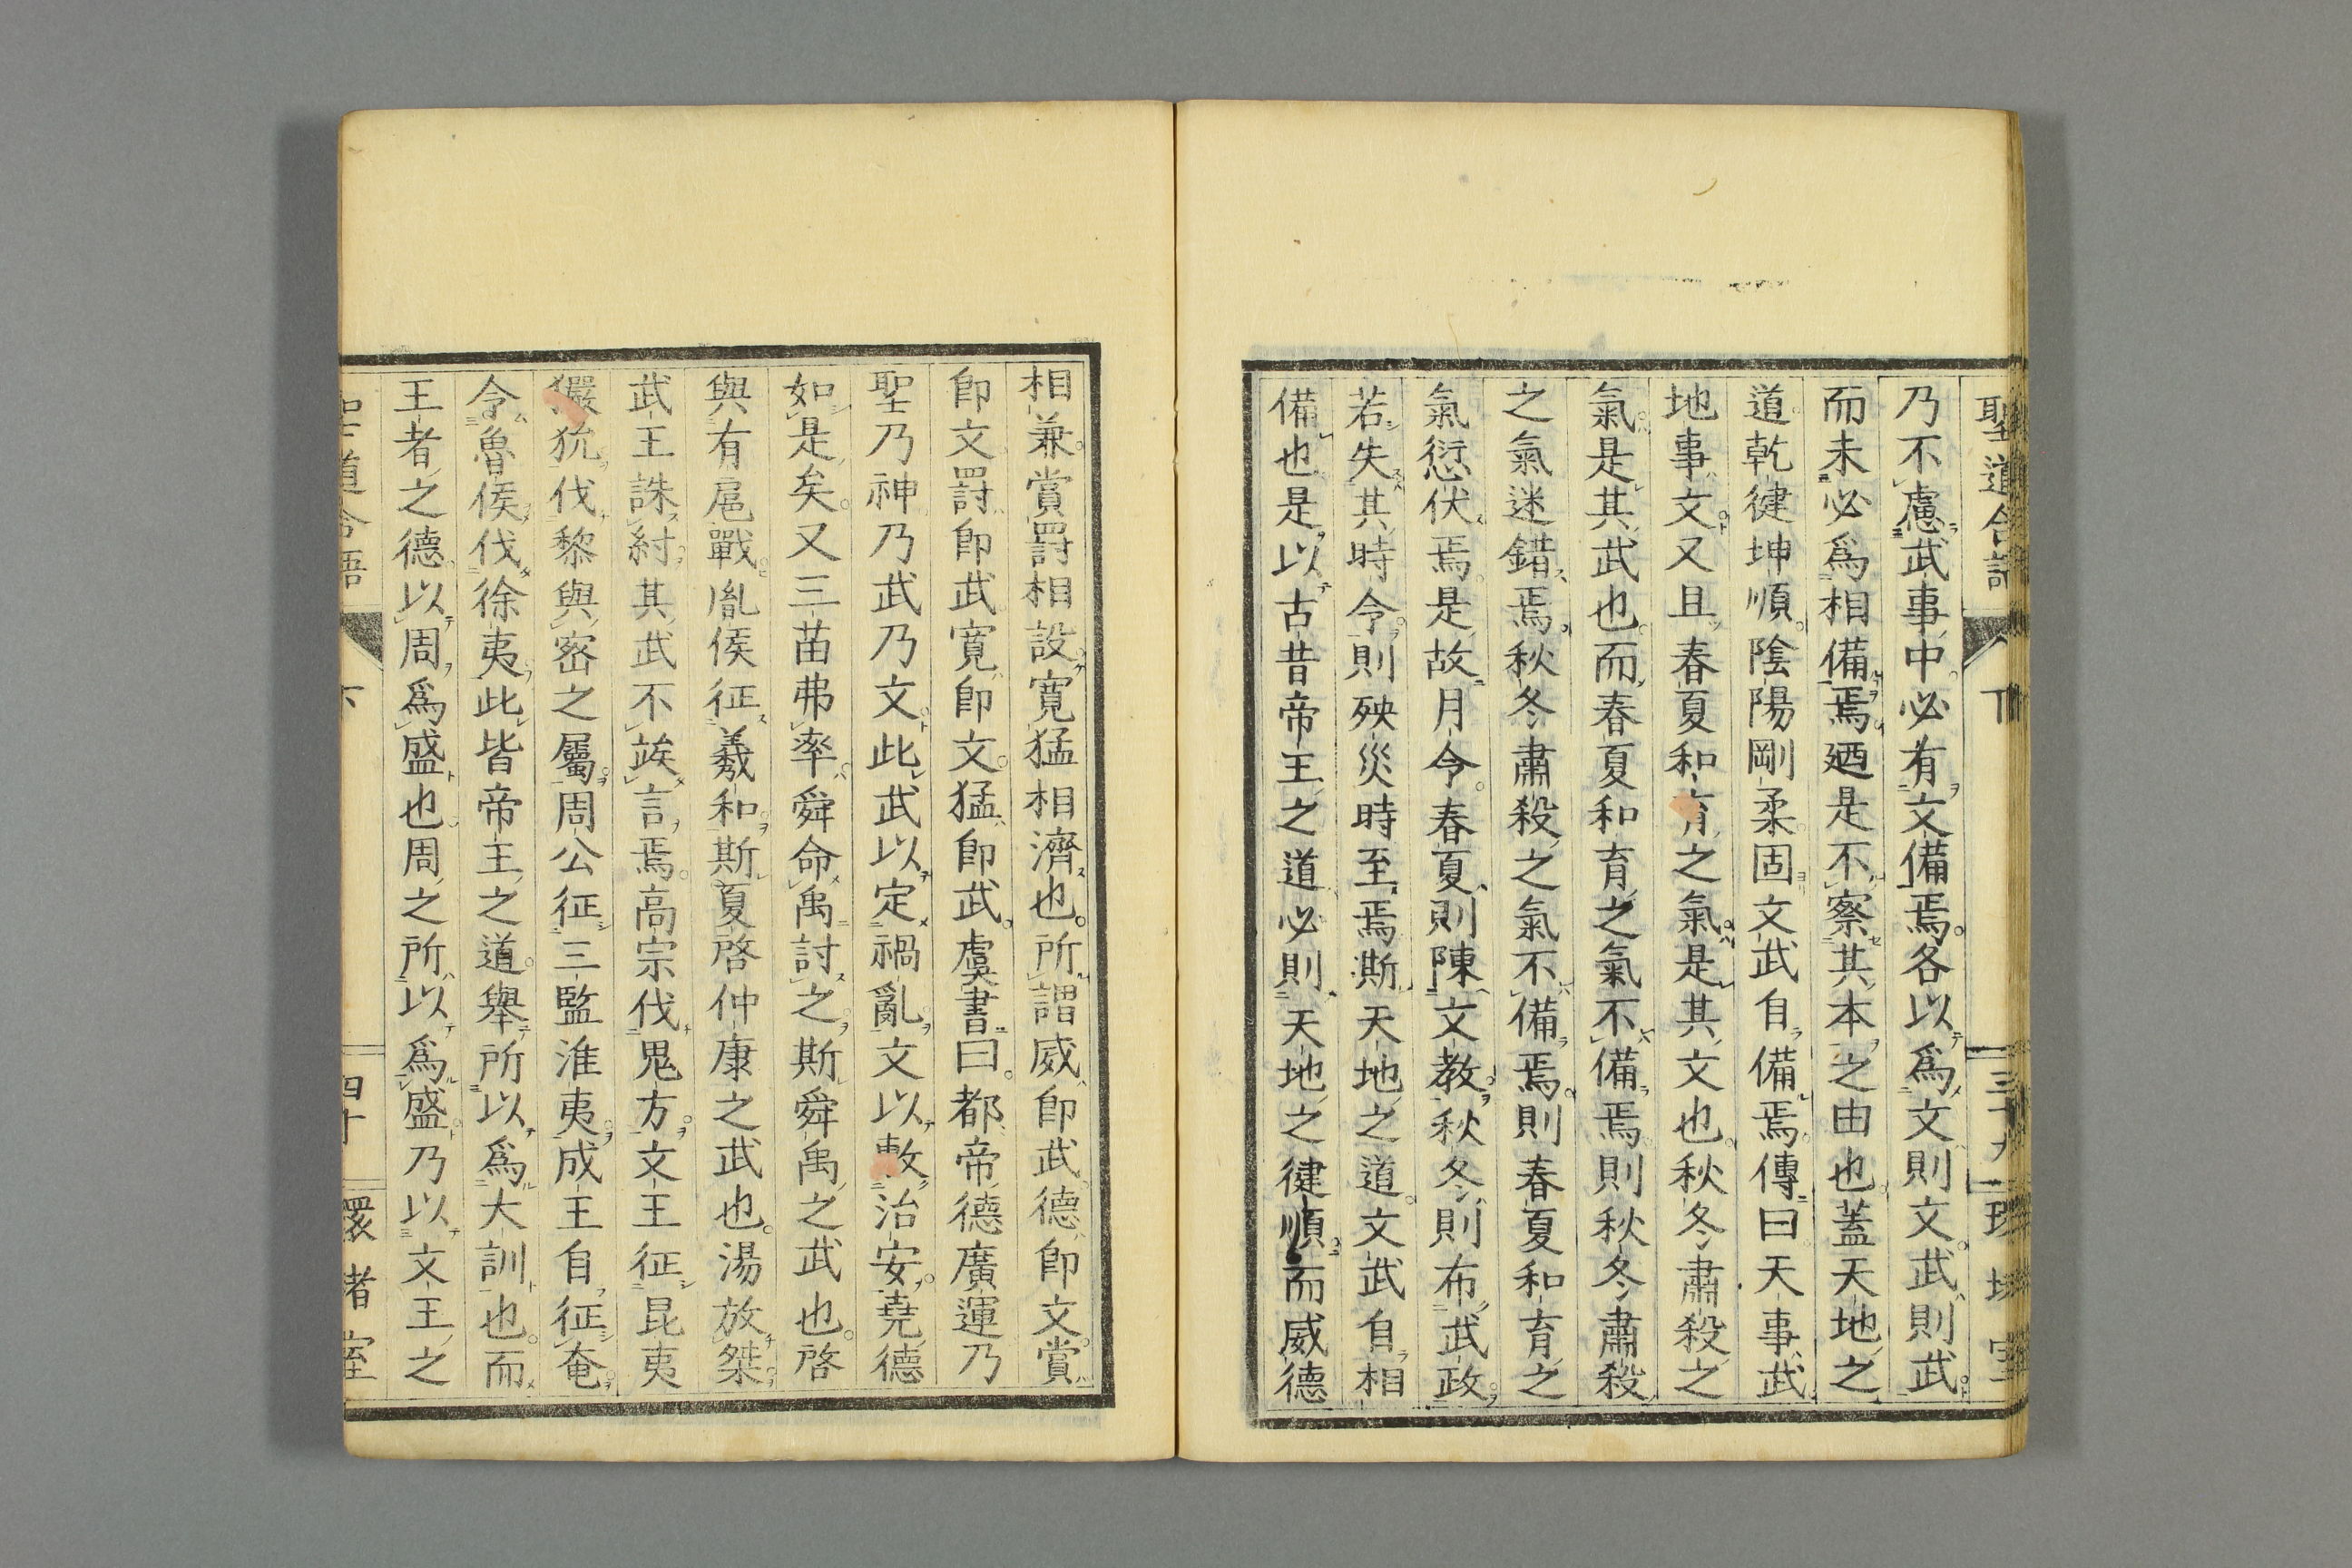 聖道合語 下 三十九
乃不慮武事中必有文備焉各以爲文則文武則武
而未必爲相備焉廼是不察其本之由也蓋天地之
道乾健坤順陰陽剛柔固文武自備焉傳曰天事武
地事文又且春夏和育之氣是其文也秋冬肅殺之
氣是其武也而春夏和育之氣不備焉則秋冬肅殺
之氣迷錯焉秋冬肅殺之氣不備焉則春夏和育之
氣愆伏焉是故月令春夏則陳文教秋冬則布武政
若失其時令則殃災時至焉斯天地之道文武自相
備也是以古昔帝王之道必則天地之健順而威德
相兼賞罸相設寬猛相濟也所謂威卽武德卽文賞
卽文罸卽武寬卽文猛卽武虞書曰都帝德廣運乃
聖乃神乃武乃文此武以定禍亂文以敷治安堯德
如是矣又三苗弗率舜命禹討之斯舜禹之武也啓
與有扈戰胤侯征羲和斯夏啓仲康之武也湯放桀
武王誅紂其武不竢言焉高宗伐鬼方文王征昆夷
玁狁伐黎與密之屬周公征三監淮夷成王自征奄
令魯侯伐徐夷此皆帝王之道舉所以爲大訓也而
王者之德以周爲盛也周之所以爲盛乃以文王之
聖道合語 下 四十 環堵室